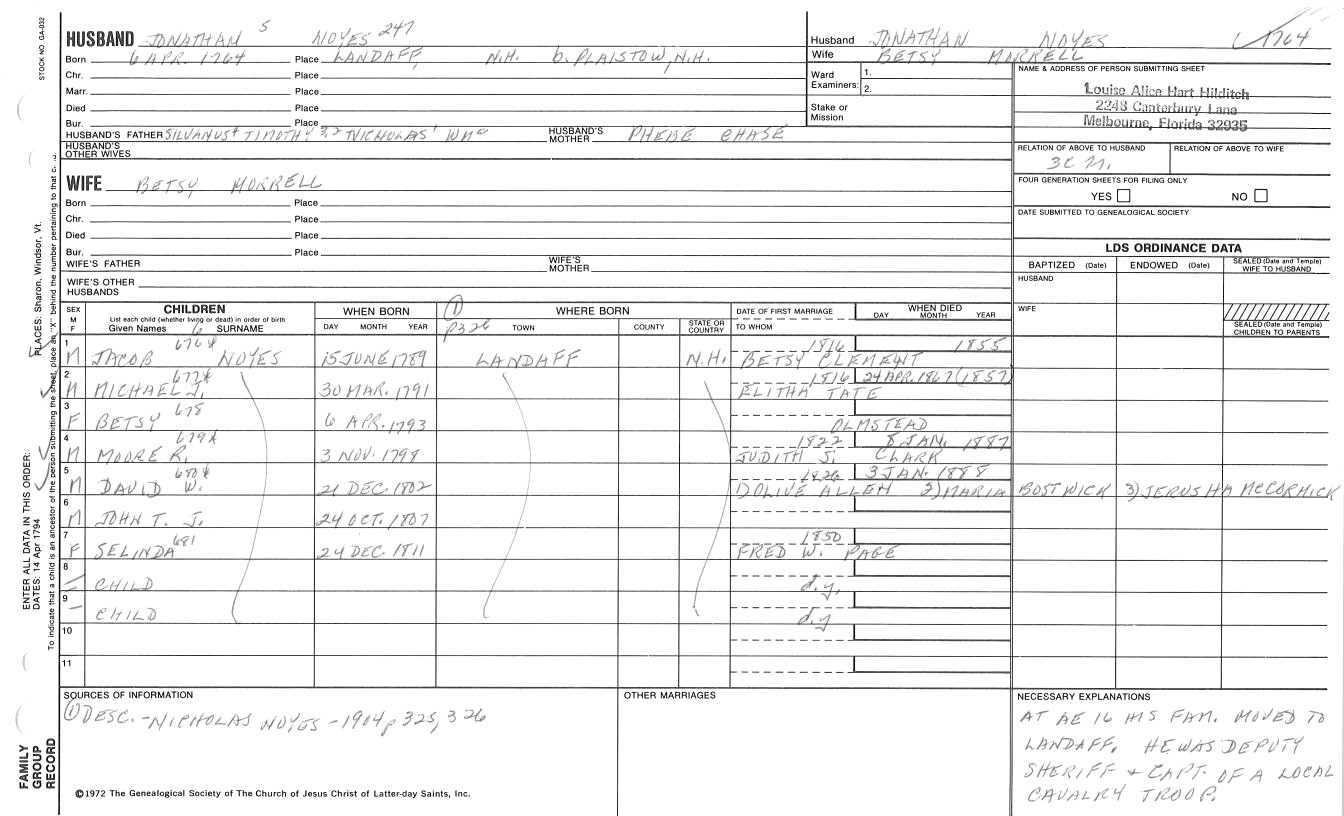 STOCK NO. GA-032
HUSBAND JONATHAN 5 NOYES 247
Born 6 APR. 1764 Place LANDAFF, N.H. b. PLAISTOW, N.H.
Chr. Place
Marr. Place
Died Place
Bur. Place
HUSBAND'S FATHER SILVANUS 4 TIMOTHY 3,2 NICHOLAS 1 WM 0 HUSBAND'S MOTHER PHEBE CHASE
HUSBAND'S OTHER WIVES
Husband JONATHAN NOYES 1764
Wife BETSY MORRELL
Ward Examiners: 1.
2.
Stake or Mission
NAME & ADDRESS OF PERSON SUBMITTING SHEET
Louise Alice Hart Hilditch
2248 Canterbury Lane
Melbourne, Florida 32935
RELATION OF ABOVE TO HUSBAND RELATION OF ABOVE TO WIFE
3C
FOUR GENERATION SHEETS FOR FILING ONLY
YES NO
DATE SUBMITTED TO GENEALOGICAL SOCIETY
WIFE BETSY MORRELL
Born Place
Chr. Place
Died Place
Bur. Place
WIFE'S FATHER WIFE'S MOTHER
WIFE'S OTHER HUSBANDS
LDS ORDINANCE DATA
BAPTIZED (Date) ENDOWED (Date) SEALED (Date and Temple) WIFE TO HUSBAND
HUSBAND
WIFE
SEALED (Date and Temple) CHILDREN TO PARENTS
SEX M F
CHILDREN
List each child (whether living or dead) in order of birth
Given Names 6 SURNAME
WHEN BORN
DAY MONTH YEAR
① p326
WHERE BORN
TOWN COUNTY STATE OR COUNTRY
DATE OF FIRST MARRIAGE
TO WHOM
WHEN DIED
DAY MONTH YEAR
1 676* 1816 1855
M JACOB NOYES 15 JUNE 1789 LANDAFF N.H. BETSY CLEMENT
2 677* 1816 24 APR. 1867 (1857)
M MICHAEL J. 30 MAR. 1791 ELITHA TATE
3 678
F BETSY 6 APR. 1793 OLMSTEAD
4 679* 1822 8 JAN. 1887
M MOORE R. 3 NOV. 1798 JUDITH S. CLARK
5 680* 1826 3 JAN. 1888
M DAVID W. 21 DEC. 1802 DOLIVE ALLEN 2) MARIA BOSTWICK 3) JERUSHA McCORMICK
6
M JOHN T. J. 24 OCT. 1807
7 681 1850
F SELINDA 24 DEC. 1811 FRED W. PAGE
8
CHILD d.y.
9
CHILD d.y.
10
11
SOURCES OF INFORMATION
① DESC. - NICHOLAS NOYES - 1904 p 325, 326
OTHER MARRIAGES
NECESSARY EXPLANATIONS
AT AE 16 HIS FAM. MOVED TO
LANDAFF. HE WAS DEPUTY
SHERIFF & CAPT. OF A LOCAL
CAVALRY TROOP.
©1972 The Genealogical Society of The Church of Jesus Christ of Latter-day Saints, Inc.
FAMILY GROUP RECORD
ENTER ALL DATA IN THIS ORDER:
DATES: 14 Apr 1794
PLACES: Sharon, Windsor, Vt.
To indicate that a child is an ancestor of the person submitting the sheet, place an "X" behind the number pertaining to that